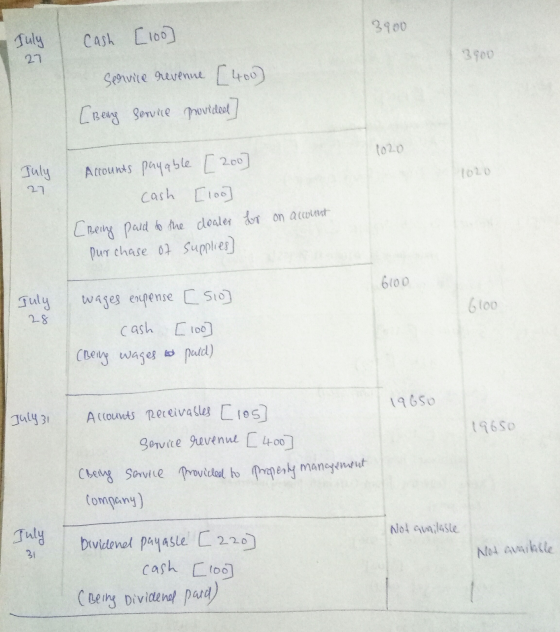 July 27 Cash [100] 3900
Service revenue [400) 3900
[Being Service Provided]
July 27 Accounts payable [200] 1020
Cash [100] 1020
[Being Paid to the dealer for on account
Purchase of Supplies]
July 28 Wages expense [510] 6100
Cash [100] 6100
(Being Wages paid)
July 31 Accounts Receivables [105] 19650
Service revenue [400] 19650
(Being Service Provided to Property management
Company)
July 31 Dividend payable [220] Not available
Cash [100] Not available
(Being Dividend paid)